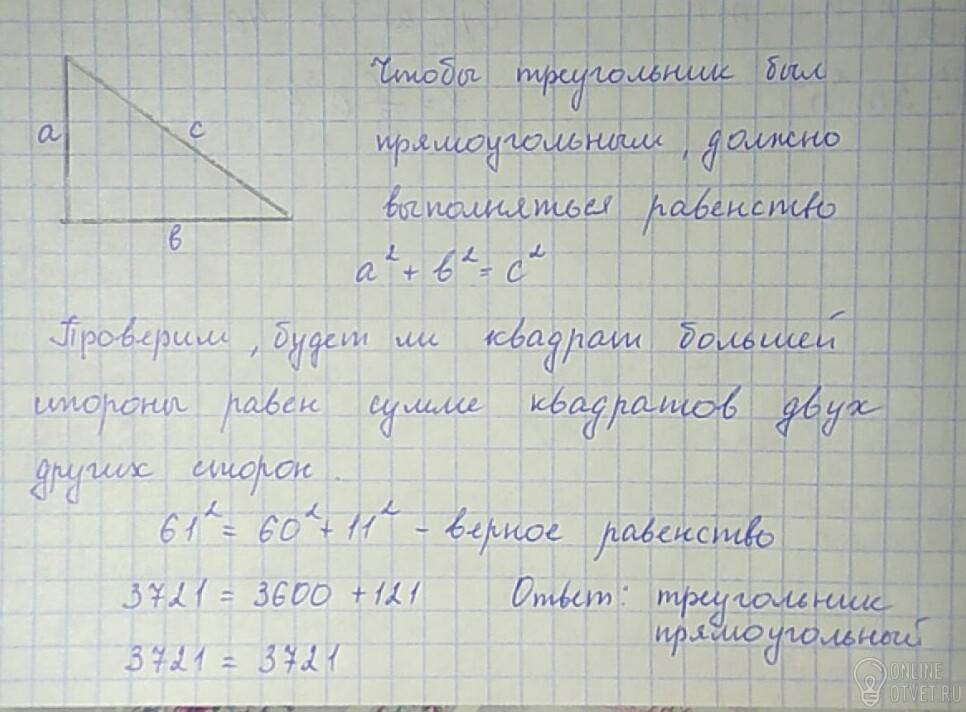 Чтобы треугольник был
a
c
прямоугольным, должно
выполняться равенство
в
a² + в² = c²
Проверим, будет ли квадрат большей
стороны равен сумме квадратов двух
других сторон.
61² = 60² + 11² - верное равенство
3721 = 3600 + 121 Ответ: треугольник
прямоугольный
3721 = 3721
ONLINE
OTVET.RU